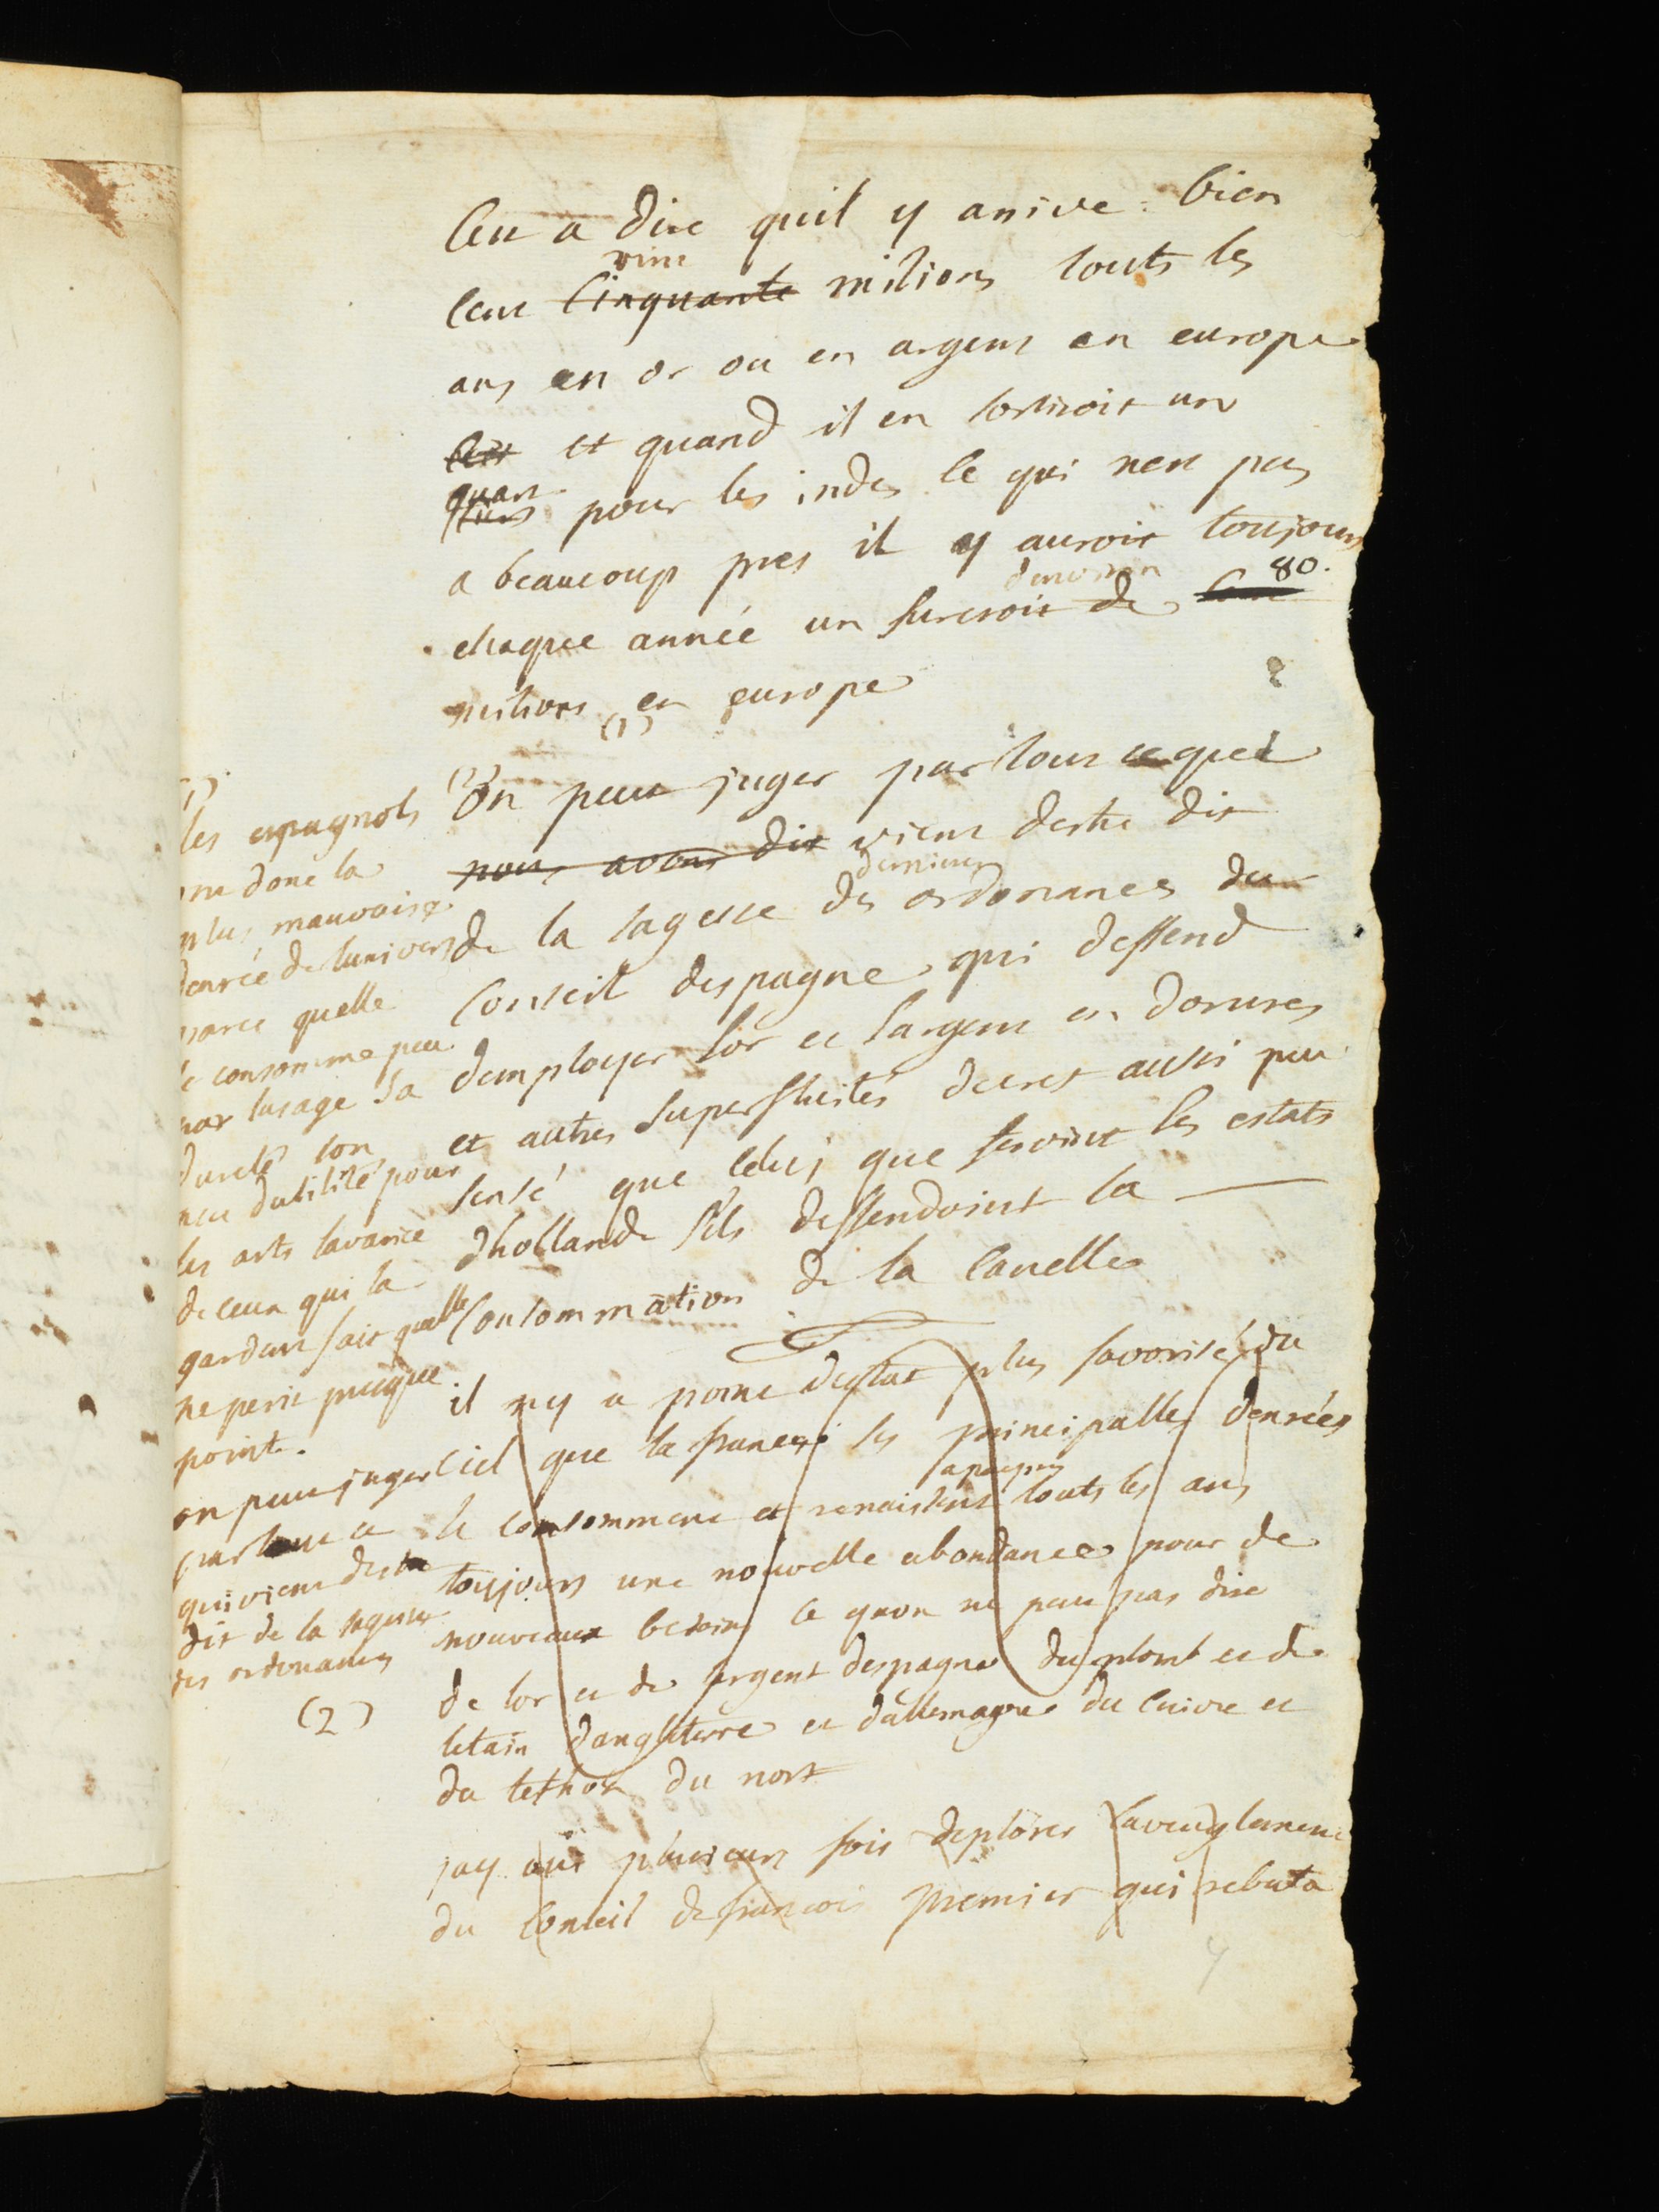 Cest a dire quil y arrive bien
cent cinquante milions touts les
vint
ans en or ou en argent en europe
et quand il en sortiroit un
quart
tiers pour les indes ce qui nest pas
a beaucoup pres il y auroit toujours
chaque année un surcroit de 80.
denviron
milions en europe
(1)
(2)
On peut juger par tout ce qui
nous avons dit vient destre dit
de la sagesse des ordonances du
dernieres
Conseil despagne qui deffend
demployer lor et largent en dorures
et autres superfluités decret aussi peu
sensé que celuy que feroint les estats
dhollande sils deffendoint la
Consommation de la canelle
il ny a point destat plus favorisé du
ciel que la france les principalles denrées
se consomment et renaissent touts les ans
a peu pres
toujours une nouvelle abondance pour de
nouveaux besoins ce quon ne peut pas dire
de lor et de largent despagne du plomb et de
letain dangleterre et dallemagne du cuivre et
du du nort
jay oui plusieurs fois deplorer laveuglement
du Conseil de francois premier qui rebuta
(1)
les espagnols
ont donc la
plus mauvaise
denrée de lunivers
parce quelle
se consomme peu
par lusage sa
dureté son
peu dutilité pour
les arts lavarice
de ceux qui la
gardent fait quelle
ne perit presque
point.
on peut juger
par tout ce
qui vient destre
dit de la sagesse
des ordonances
(2)
4